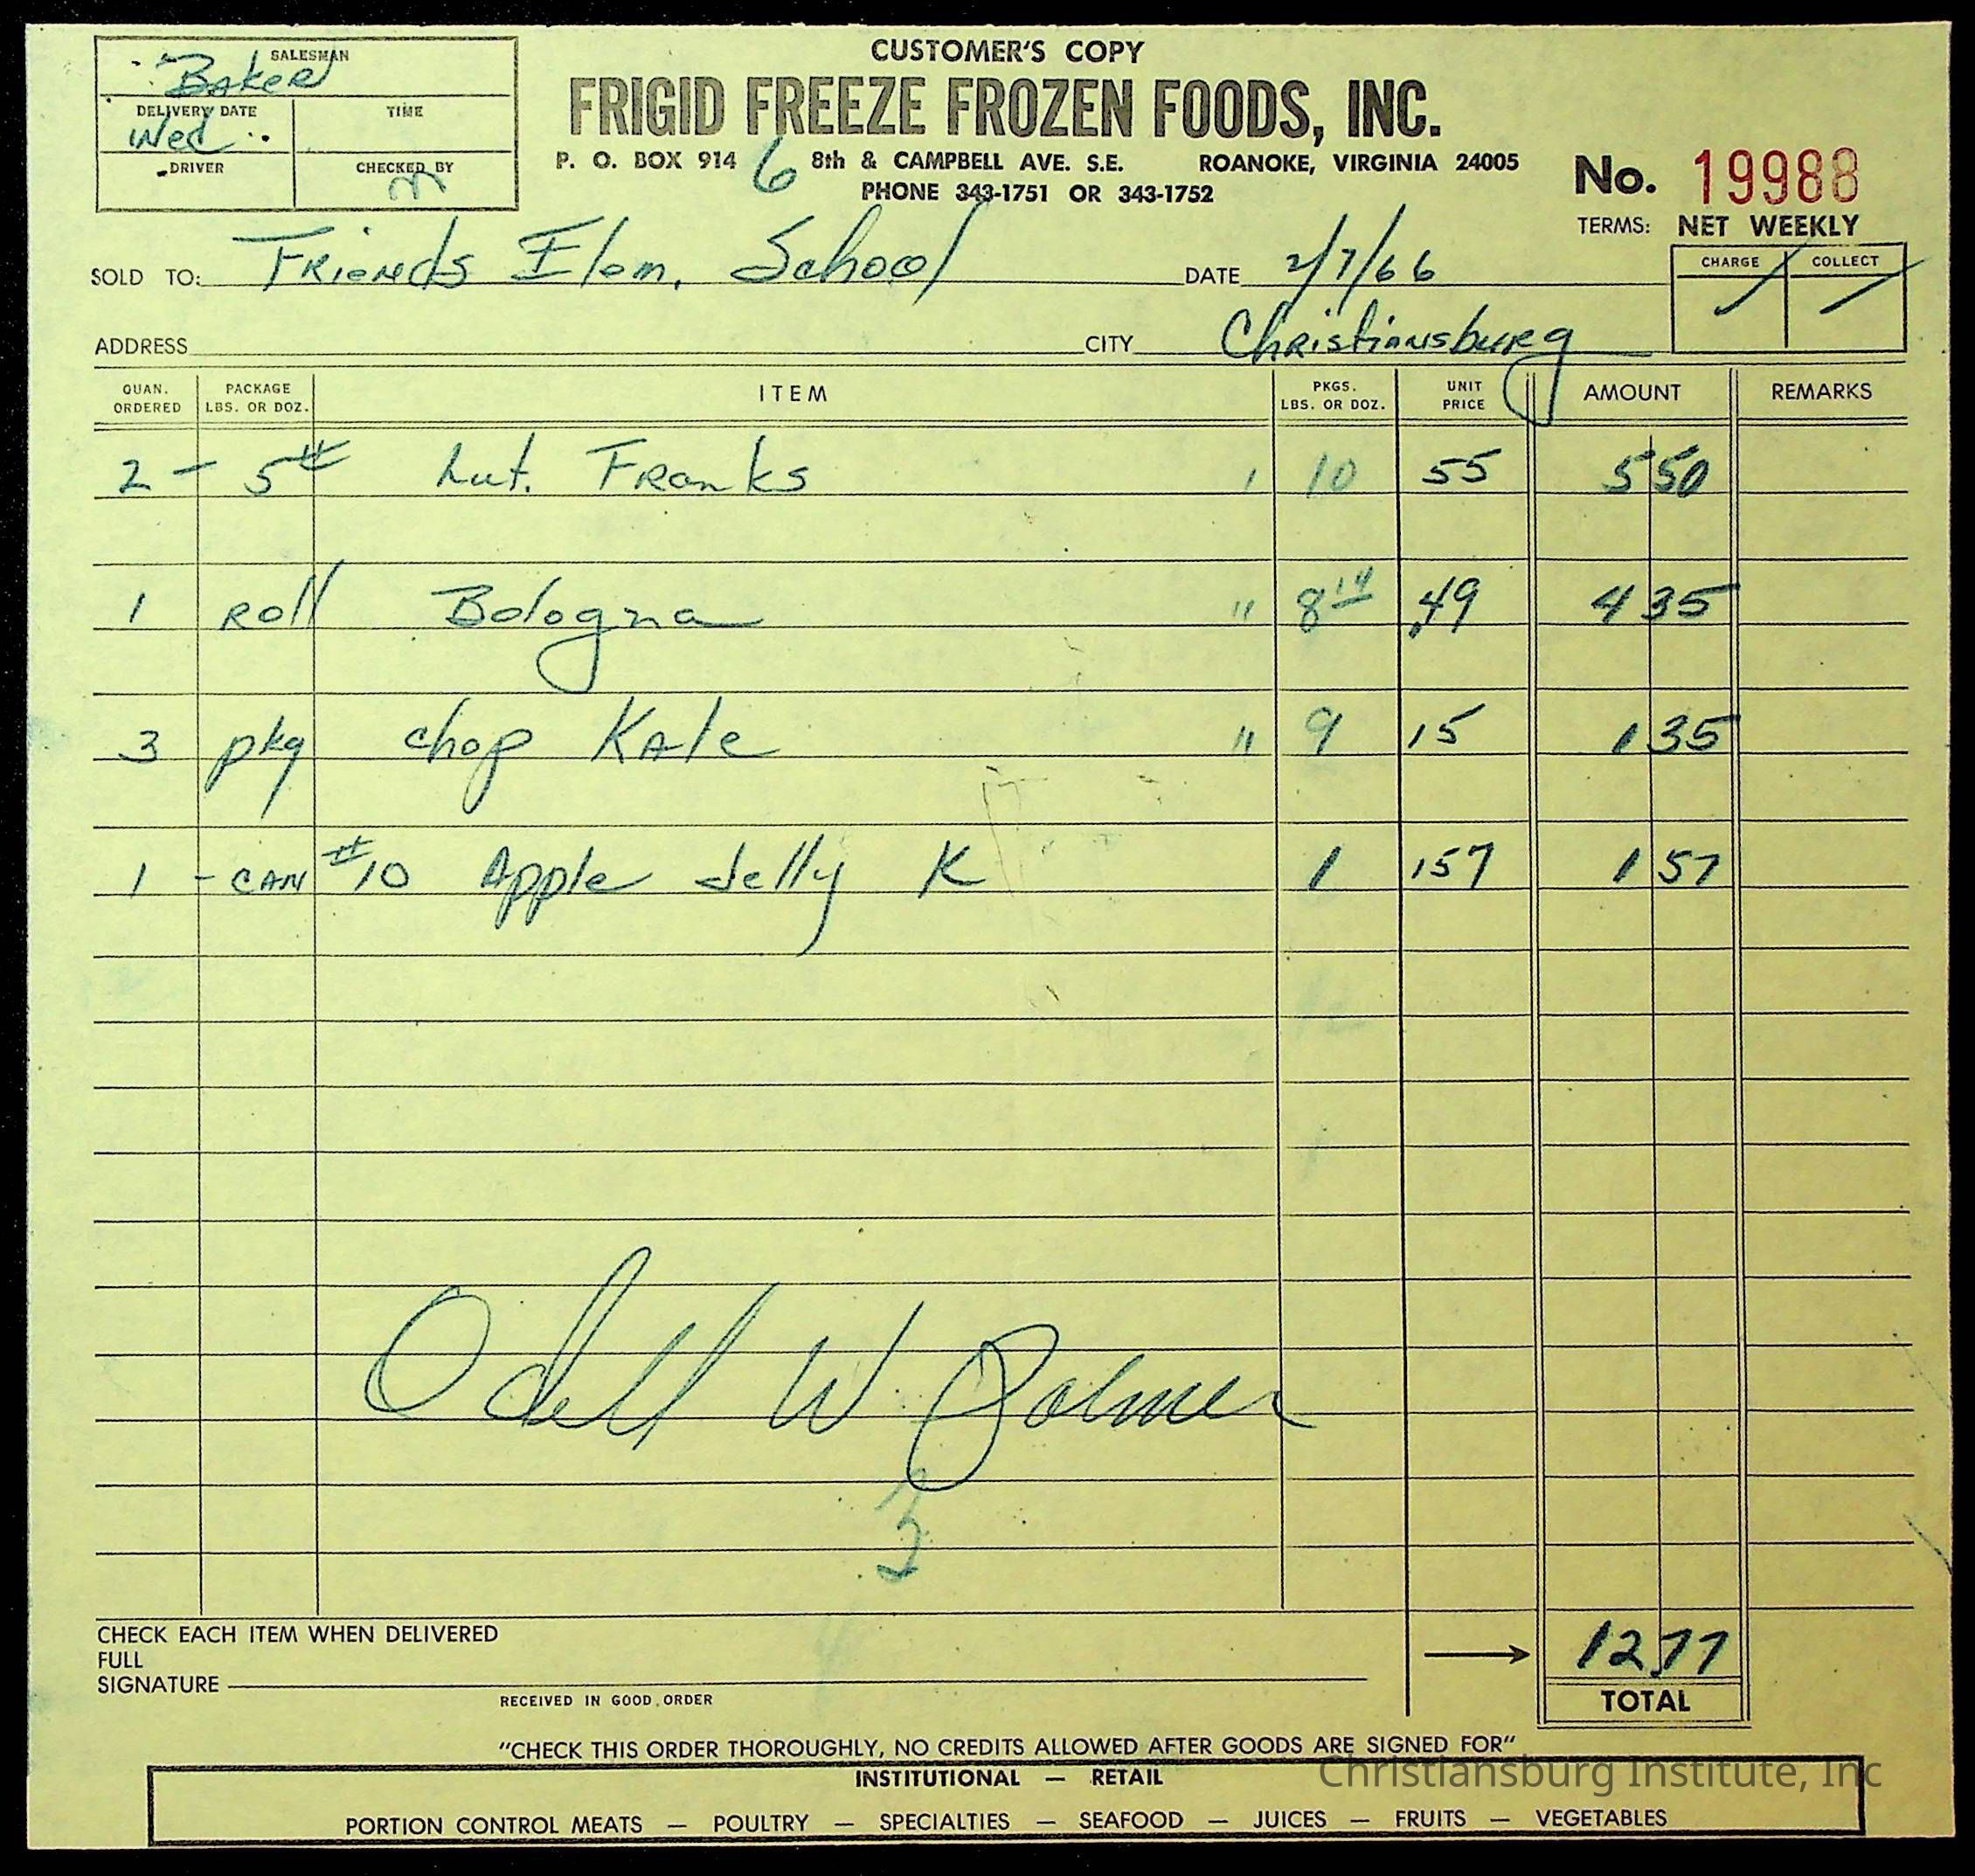 CUSTOMER'S COPY
FRIGID FREEZE FROZEN FOODS, INC.
P. O. BOX 914 6 8th & CAMPBELL AVE. S.E. ROANOKE, VIRGINIA 24005
PHONE 343-1751 OR 343-1752
SALESMAN
Baker
DELIVERY DATE TIME
Wed
DRIVER CHECKED BY
No. 19988
TERMS: NET WEEKLY
CHARGE COLLECT
SOLD TO: Friends Elem. School DATE 2/7/66
ADDRESS CITY Christiansburg
QUAN. ORDERED PACKAGE LBS. OR DOZ. ITEM PKGS. LBS. OR DOZ. UNIT PRICE AMOUNT REMARKS
2 - 5# Lut. Franks 10 55 5 50
1 Roll Bologna " 8 14 .49 4 35
3 pkg chop Kale " 9 15 1 35
1 - CAN #10 Apple Jelly K 1 157 1 57
Odell W Palmer
3
CHECK EACH ITEM WHEN DELIVERED
FULL
SIGNATURE
RECEIVED IN GOOD ORDER
12 77
TOTAL
"CHECK THIS ORDER THOROUGHLY, NO CREDITS ALLOWED AFTER GOODS ARE SIGNED FOR"
INSTITUTIONAL — RETAIL
PORTION CONTROL MEATS — POULTRY — SPECIALTIES — SEAFOOD — JUICES — FRUITS — VEGETABLES
Christiansburg Institute, Inc